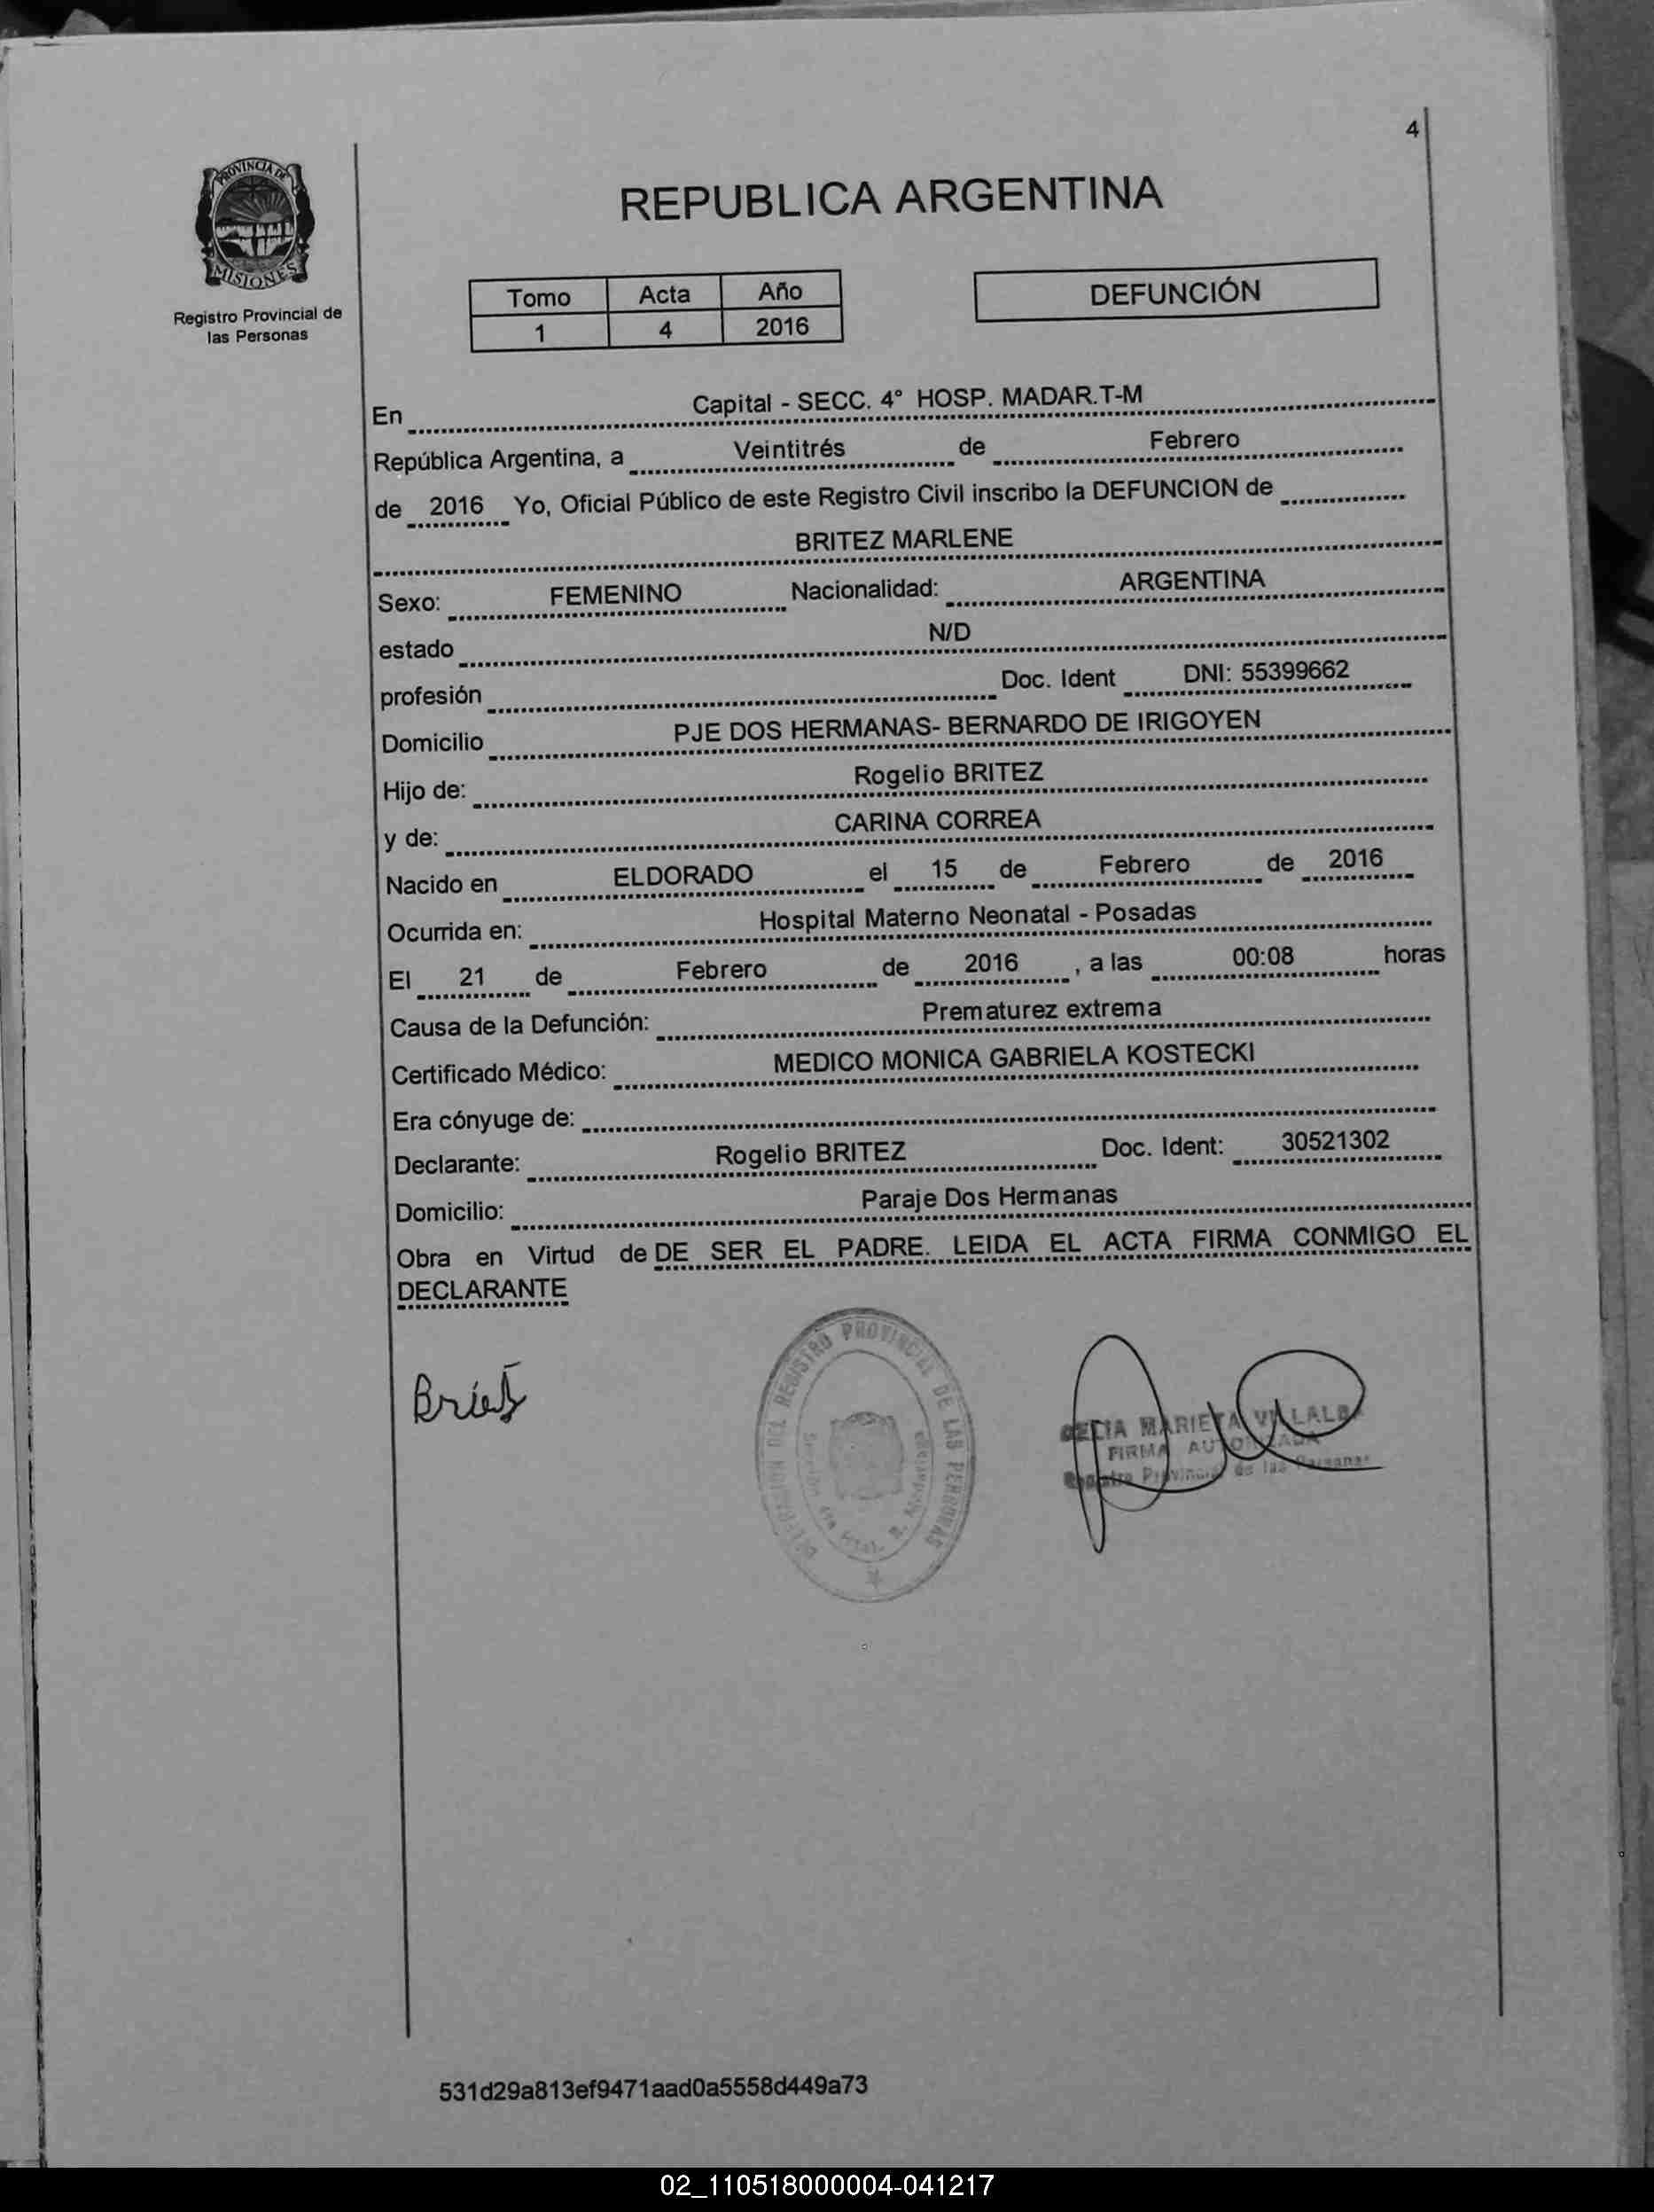 4
PROVINCIA DE
MISIONES
Registro Provincial de
las Personas
REPUBLICA ARGENTINA
Tomo Acta Año
1 4 2016
DEFUNCIÓN
En Capital - SECC. 4° HOSP. MADAR.T-M
República Argentina, a Veintitrés de Febrero
de 2016 Yo, Oficial Público de este Registro Civil inscribo la DEFUNCION de
BRITEZ MARLENE
Sexo: FEMENINO Nacionalidad: ARGENTINA
estado N/D
profesión Doc. Ident DNI: 55399662
Domicilio PJE DOS HERMANAS- BERNARDO DE IRIGOYEN
Hijo de: Rogelio BRITEZ
y de: CARINA CORREA
Nacido en ELDORADO el 15 de Febrero de 2016
Ocurrida en: Hospital Materno Neonatal - Posadas
El 21 de Febrero de 2016 , a las 00:08 horas
Causa de la Defunción: Prematurez extrema
Certificado Médico: MEDICO MONICA GABRIELA KOSTECKI
Era cónyuge de:
Declarante: Rogelio BRITEZ Doc. Ident: 30521302
Domicilio: Paraje Dos Hermanas
Obra en Virtud de DE SER EL PADRE. LEIDA EL ACTA FIRMA CONMIGO EL
DECLARANTE
DELEGACION DEL REGISTRO PROVINCIAL DE LAS PERSONAS
CELIA MARIETA VILLALBA
FIRMA AUTORIZADA
Registro Provincial de las Personas
531d29a813ef9471aad0a5558d449a73
02_110518000004-041217